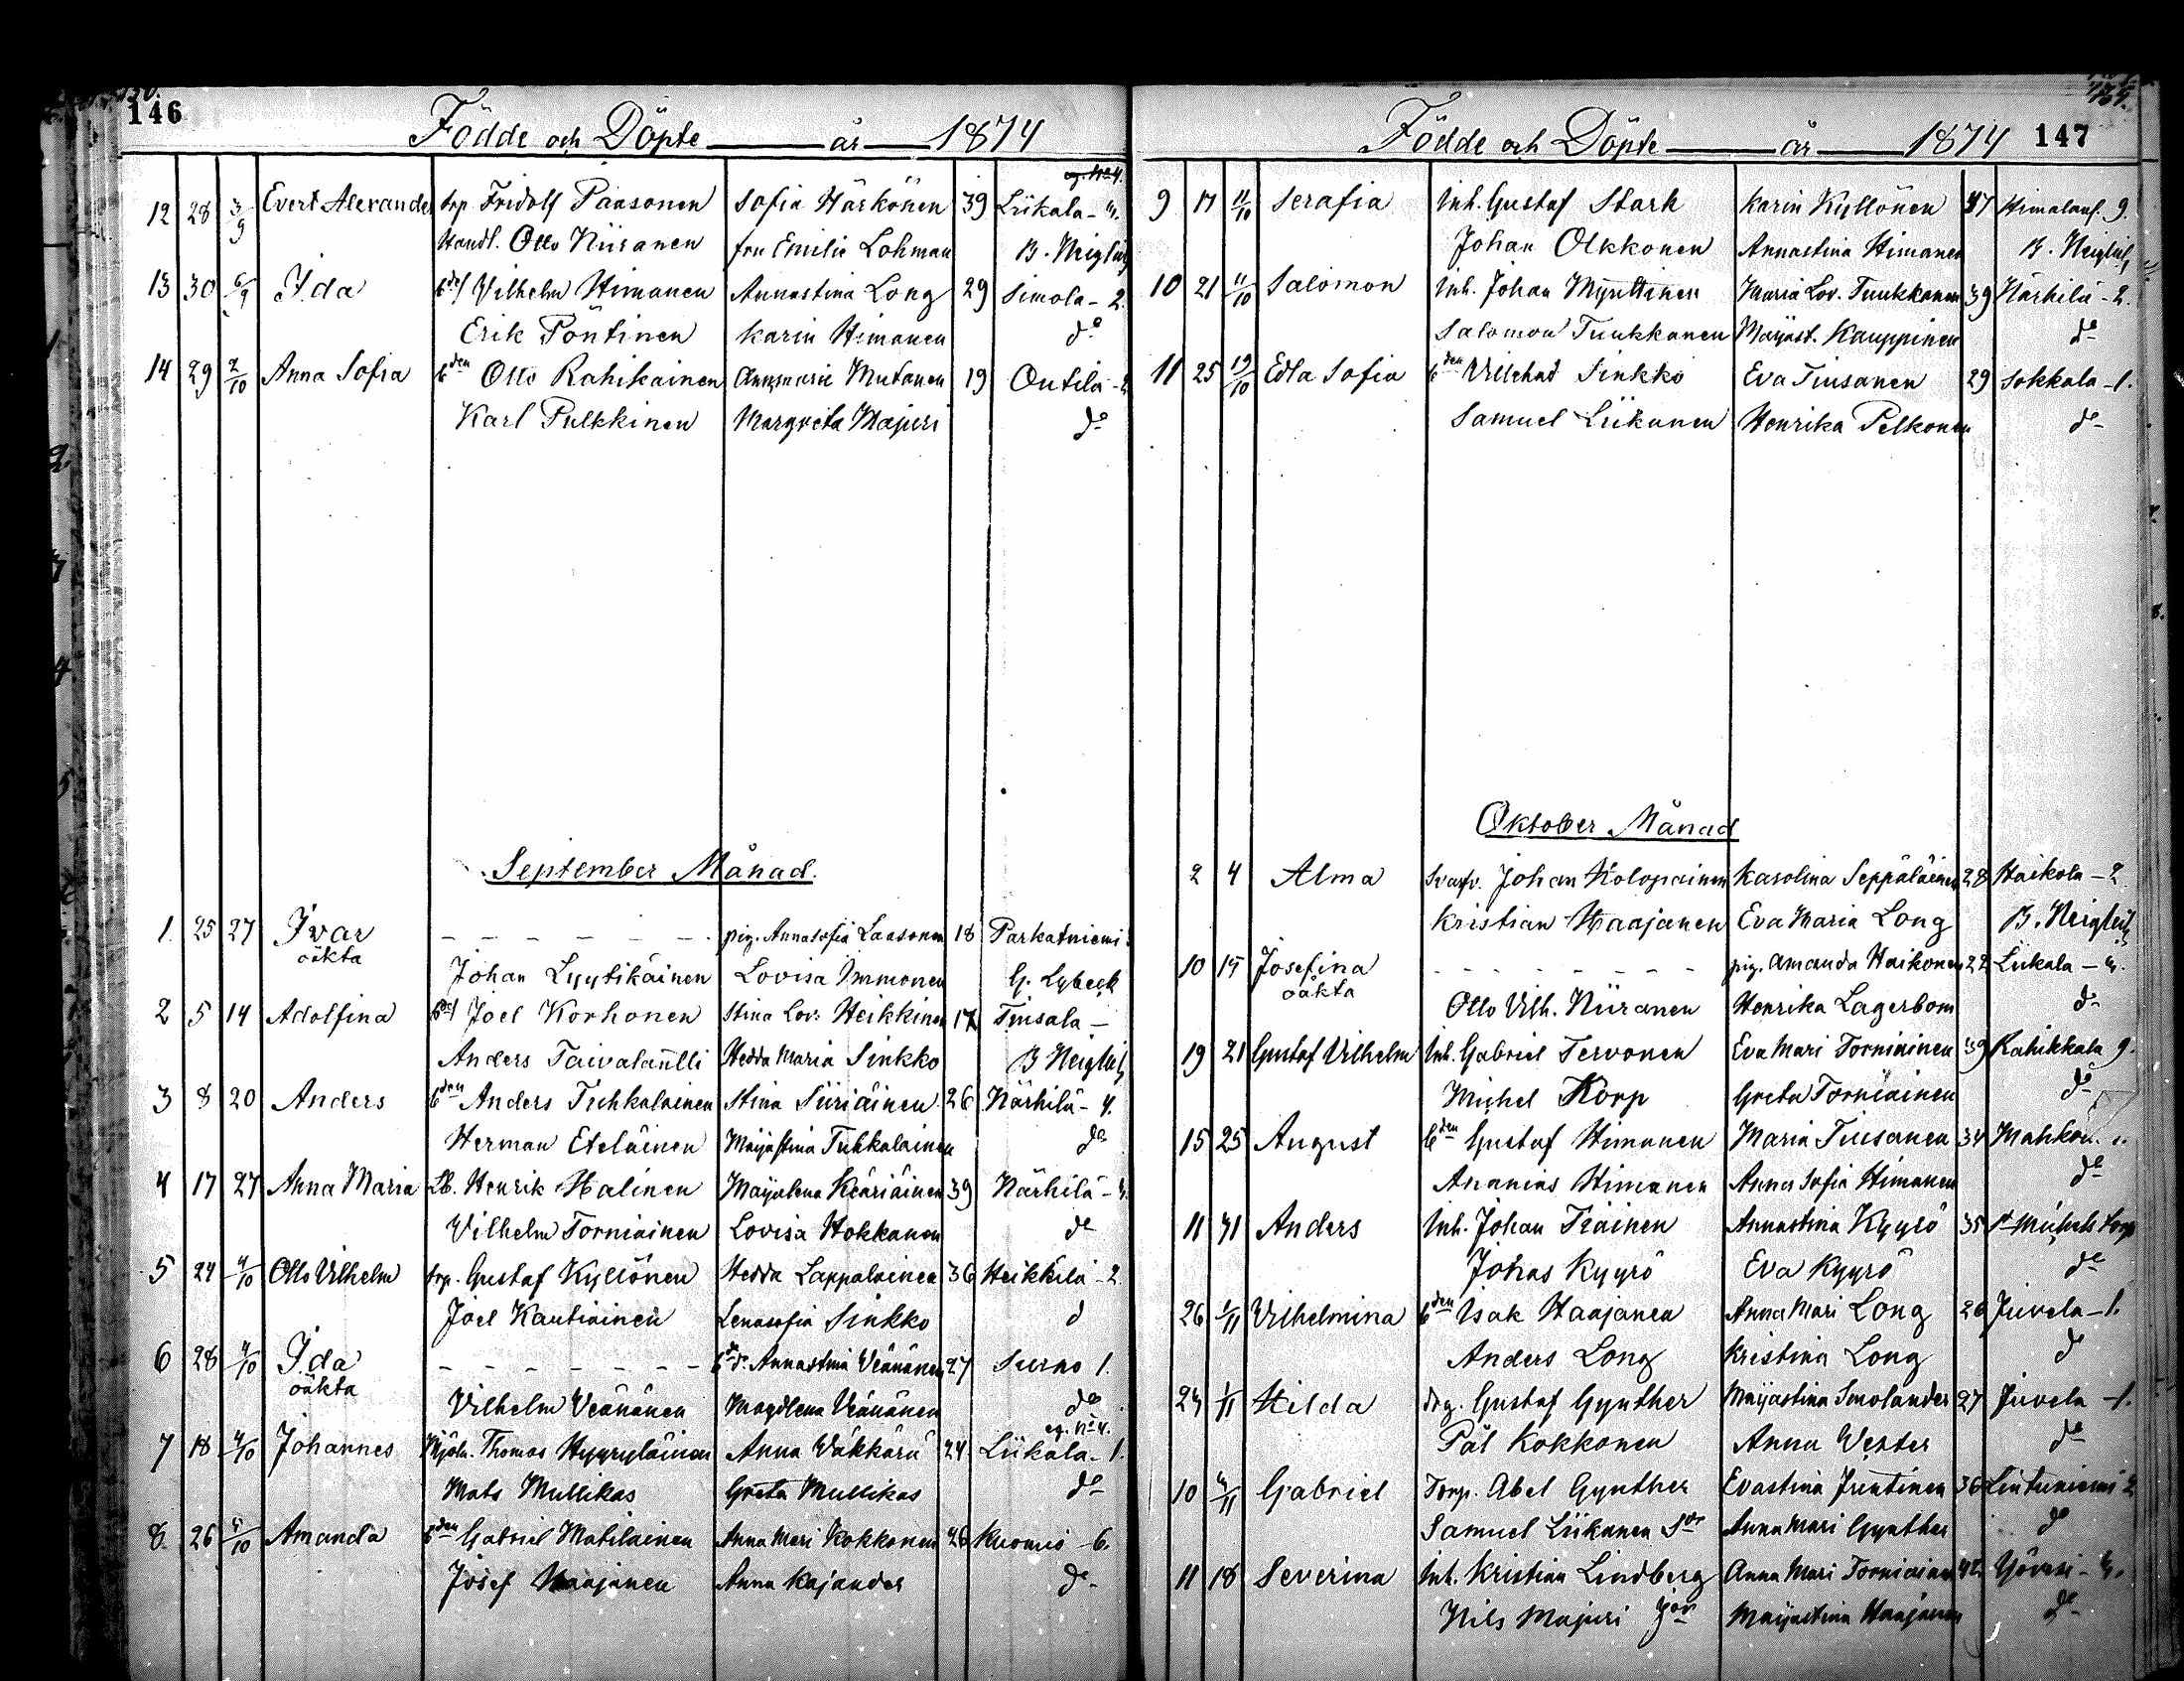 146
Födde och Döpte år 1874
12 28 3/9 Evert Alexander trp. Fridolf Paasonen Sofia Härkönen 39 Liikala - 4.
Handl. Otto Niiranen fru Emilie Lohman B. Neiglick
13 30 6/9 Ida Vilhelm Himanen Annastina Long 29 Simola - 2.
Erik Pöntinen Karin Himanen do
14 29 2/10 Anna Sofia bden Otto Rahikainen Annamarie Mutanen 19 Outila - 2
Karl Pulkkinen Margreta Majuri do
September Månad.
1. 25 27 Ivar - - - - - - - pig. Annasofia Laasonen 18 Parkatniemi
oäkta
Johan Lyytikäinen Lovisa Immonen G. Lybeck
2 5 14 Adolfina Joel Korhonen Stina Lov. Heikkinen 17 Tiusala -
Anders Taivalantti Hedda Maria Sinkko B Neiglick
3 8 20 Anders bden Anders Tuhkalainen Stina Siiriäinen 26 Närhilä - 4.
Herman Eteläinen Maijastina Tuhkalainen do
4 17 27 Anna Maria Lb. Henrik Halinen Maijalena Kääriäinen 39 Närhilä - 4.
Vilhelm Torniainen Lovisa Hokkanen do
5 24 4/10 Otto Vilhelm trp. Gustaf Kyllönen Hedda Lappalainen 36 Heikkilä - 2.
Joel Kautiainen Lenasofia Sinkko d
6 28 4/10 Ida - - - - - - - Annastina Väänänen 27 Surno 1.
oäkta
Vilhelm Väänänen Magdlena Väänänen do
7 18 4/10 Johannes Mjöln. Thomas Hyyryläinen Anna Wäkkärä 24 Liikala - 1.
eg. No 4.
Mats Mullikas Greta Mullikas do
8. 26 4/10 Amanda bden Gabriel Matilainen Anna Mari Kokkonen 26 Kuomio - 6.
Josef Haajanen Anna Kajander do
147
Födde och Döpte år 1874
9 17 11/10 Serafia Inh. Gustaf Stark Karin Kyllönen 37 9.
Johan Olkkonen Annastina Himanen B. Neiglick
10 21 11/10 Salomon Inh. Johan Mynttinen Maria Lov. Tuukkanen 39 Närhilä - 2.
Salomon Tuukkanen Maijast. Kauppinen do
11 25 19/10 Edla Sofia bden Villehad Sinkko Eva Tiusanen 29 Sokkala - 1.
Samuel Liikanen Henrika Pelkonen do
Oktober Månad
2 4 Alma Svarfv. Johan Holopainen Karolina Seppäläinen 28 Haikola - 2
Kristian Haajanen Eva Maria Long B. Neiglick
10 15 Josefina - - - - - - - pig. Amanda Haikonen 22 Liikala - 4.
oäkta
Otto Vilh. Niiranen Henrika Lagerbom do
19 21 Gustaf Vilhelm Inh. Gabriel Tervonen Eva Mari Torniainen 39 Kahikkala 9.
Michel Korp Greta Torniainen do
15 25 August bden Gustaf Himanen Maria Tiusanen 34
Ananias Himanen Anna Sofia Himanen do
11 31 Anders Inh. Johan Piäinen Annastina Kyyrö 35 St Michels Torp
Johas Kyyrö Eva Kyyrö do
26 1/11 Vilhelmina bden Isak Haajanen Anna Mari Long 26 Juvela - 1.
Anders Long Kristina Long d
24 1/11 Hilda drg. Gustaf Gynther Maijastina Smolander 27 Juvela - 1.
Pål Kokkonen Anna Wester do
10 4/11 Gabriel Torp. Abel Gynther Evastina Juntinen 36 Lintuniemi 2
Samuel Liikanen Sor Anna Mari Gynther do
11 18 Severina Inh. Kristian Lindberg Anna Mari Torniainen 42 - 4.
Nils Majuri Jor Maijastina Haajanen do